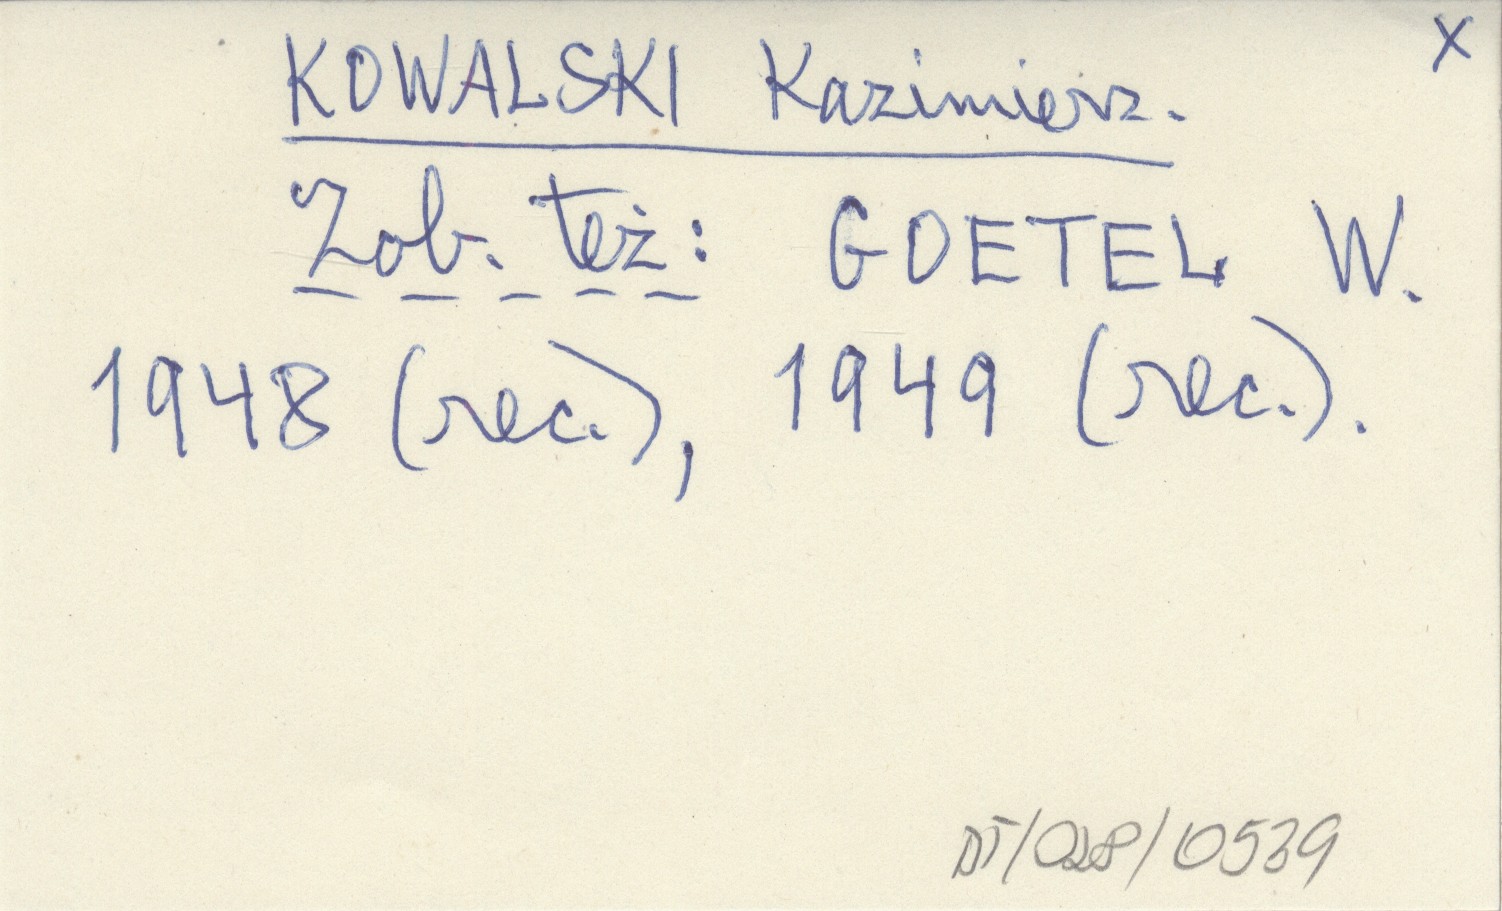 x
KOWALSKI Kazimierz.
Zob. też: GOETEL W.
1948 (rec.), 1949 (rec.).
DT/028/0539